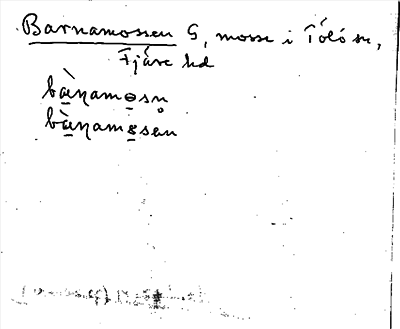 Barnamossen G, mosse i Tölö sn,
Fjäre hd
bàṉamo̱sn̥
bàṉamo̱sen